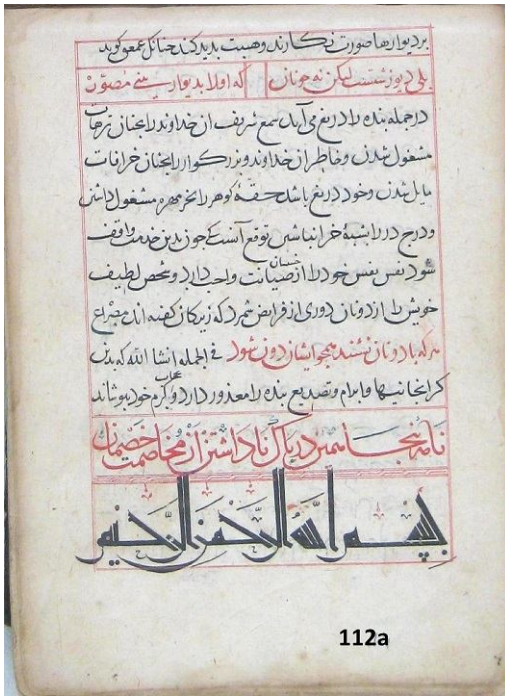 بر دیوارها صورت نکارند و هیبت بدید کند چنانک عمعق کوید
بلی دیو زشتست لیکن نه چونان که او را بدیوار بینی مصور
در جمله بنده را دریغ می آید سمع شریف ان خداوند را بخنان ترهات
مشغول شدن و خاطر ان خداوند بزرکوار را بخنان خرافات
مایل شدن و خود دریغ باشد حقه کوهر را بخرمهره مشغول داشتن
ودرج در را شبه خر انباشتن توقع آنست که چون بدین خدمت واقف
شود نفس نفیس خود را از صیانت واجب دارد و شخص لطیف
خویش را از دونان دوری از فرایض شمرد که بزرکان کفته اند مصراع
هر که با دونان نشیند همچو ایشان دون شود فی الجمله انشا الله که بدین
کرانجانیها و ابرام و تصدیع بنده را معذور دارد و بکرم خود بپوشاند
نامه پنجاهم در باک ناداشتن از مخاصمت خصمان
بسم الله الرحمن الرحیم
112a